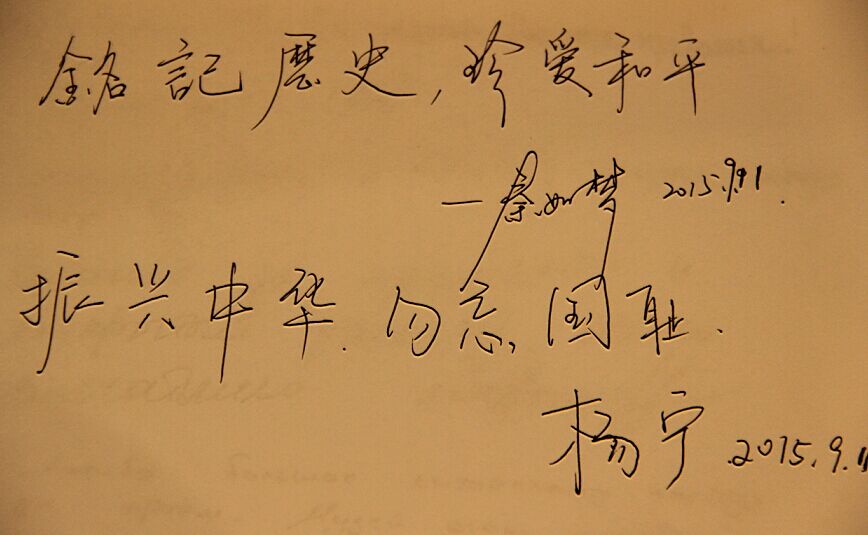 銘記歷史,珍爱和平
—秦如梦 2015.9.11.
振兴中华.勿忘国耻.
杨宁 2015.9.11